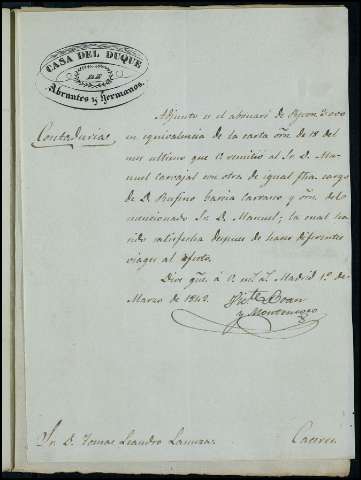 CASA DEL DUQUE
DE
Abrantes y Hermanos.
Contaduria
Adjunto el abonaré de 3000
en equivalencia de la carta orn. de 18 del
mes ultimo que V. remitió al Sr. D. Ma-
nuel Carvajal con otra de igual fha. cargo
de D. Rufino Garcia Carrasco y orn. del
mencionado Sr. D. Manuel; la cual ha
sido satisfecha despues de haver diferentes
viages al efecto.
Dios gue. á V. ms. as. Madrid 1º de
Marzo de 1843.
y Montenegro
Sr. D. Tomas Leandro
Caceres